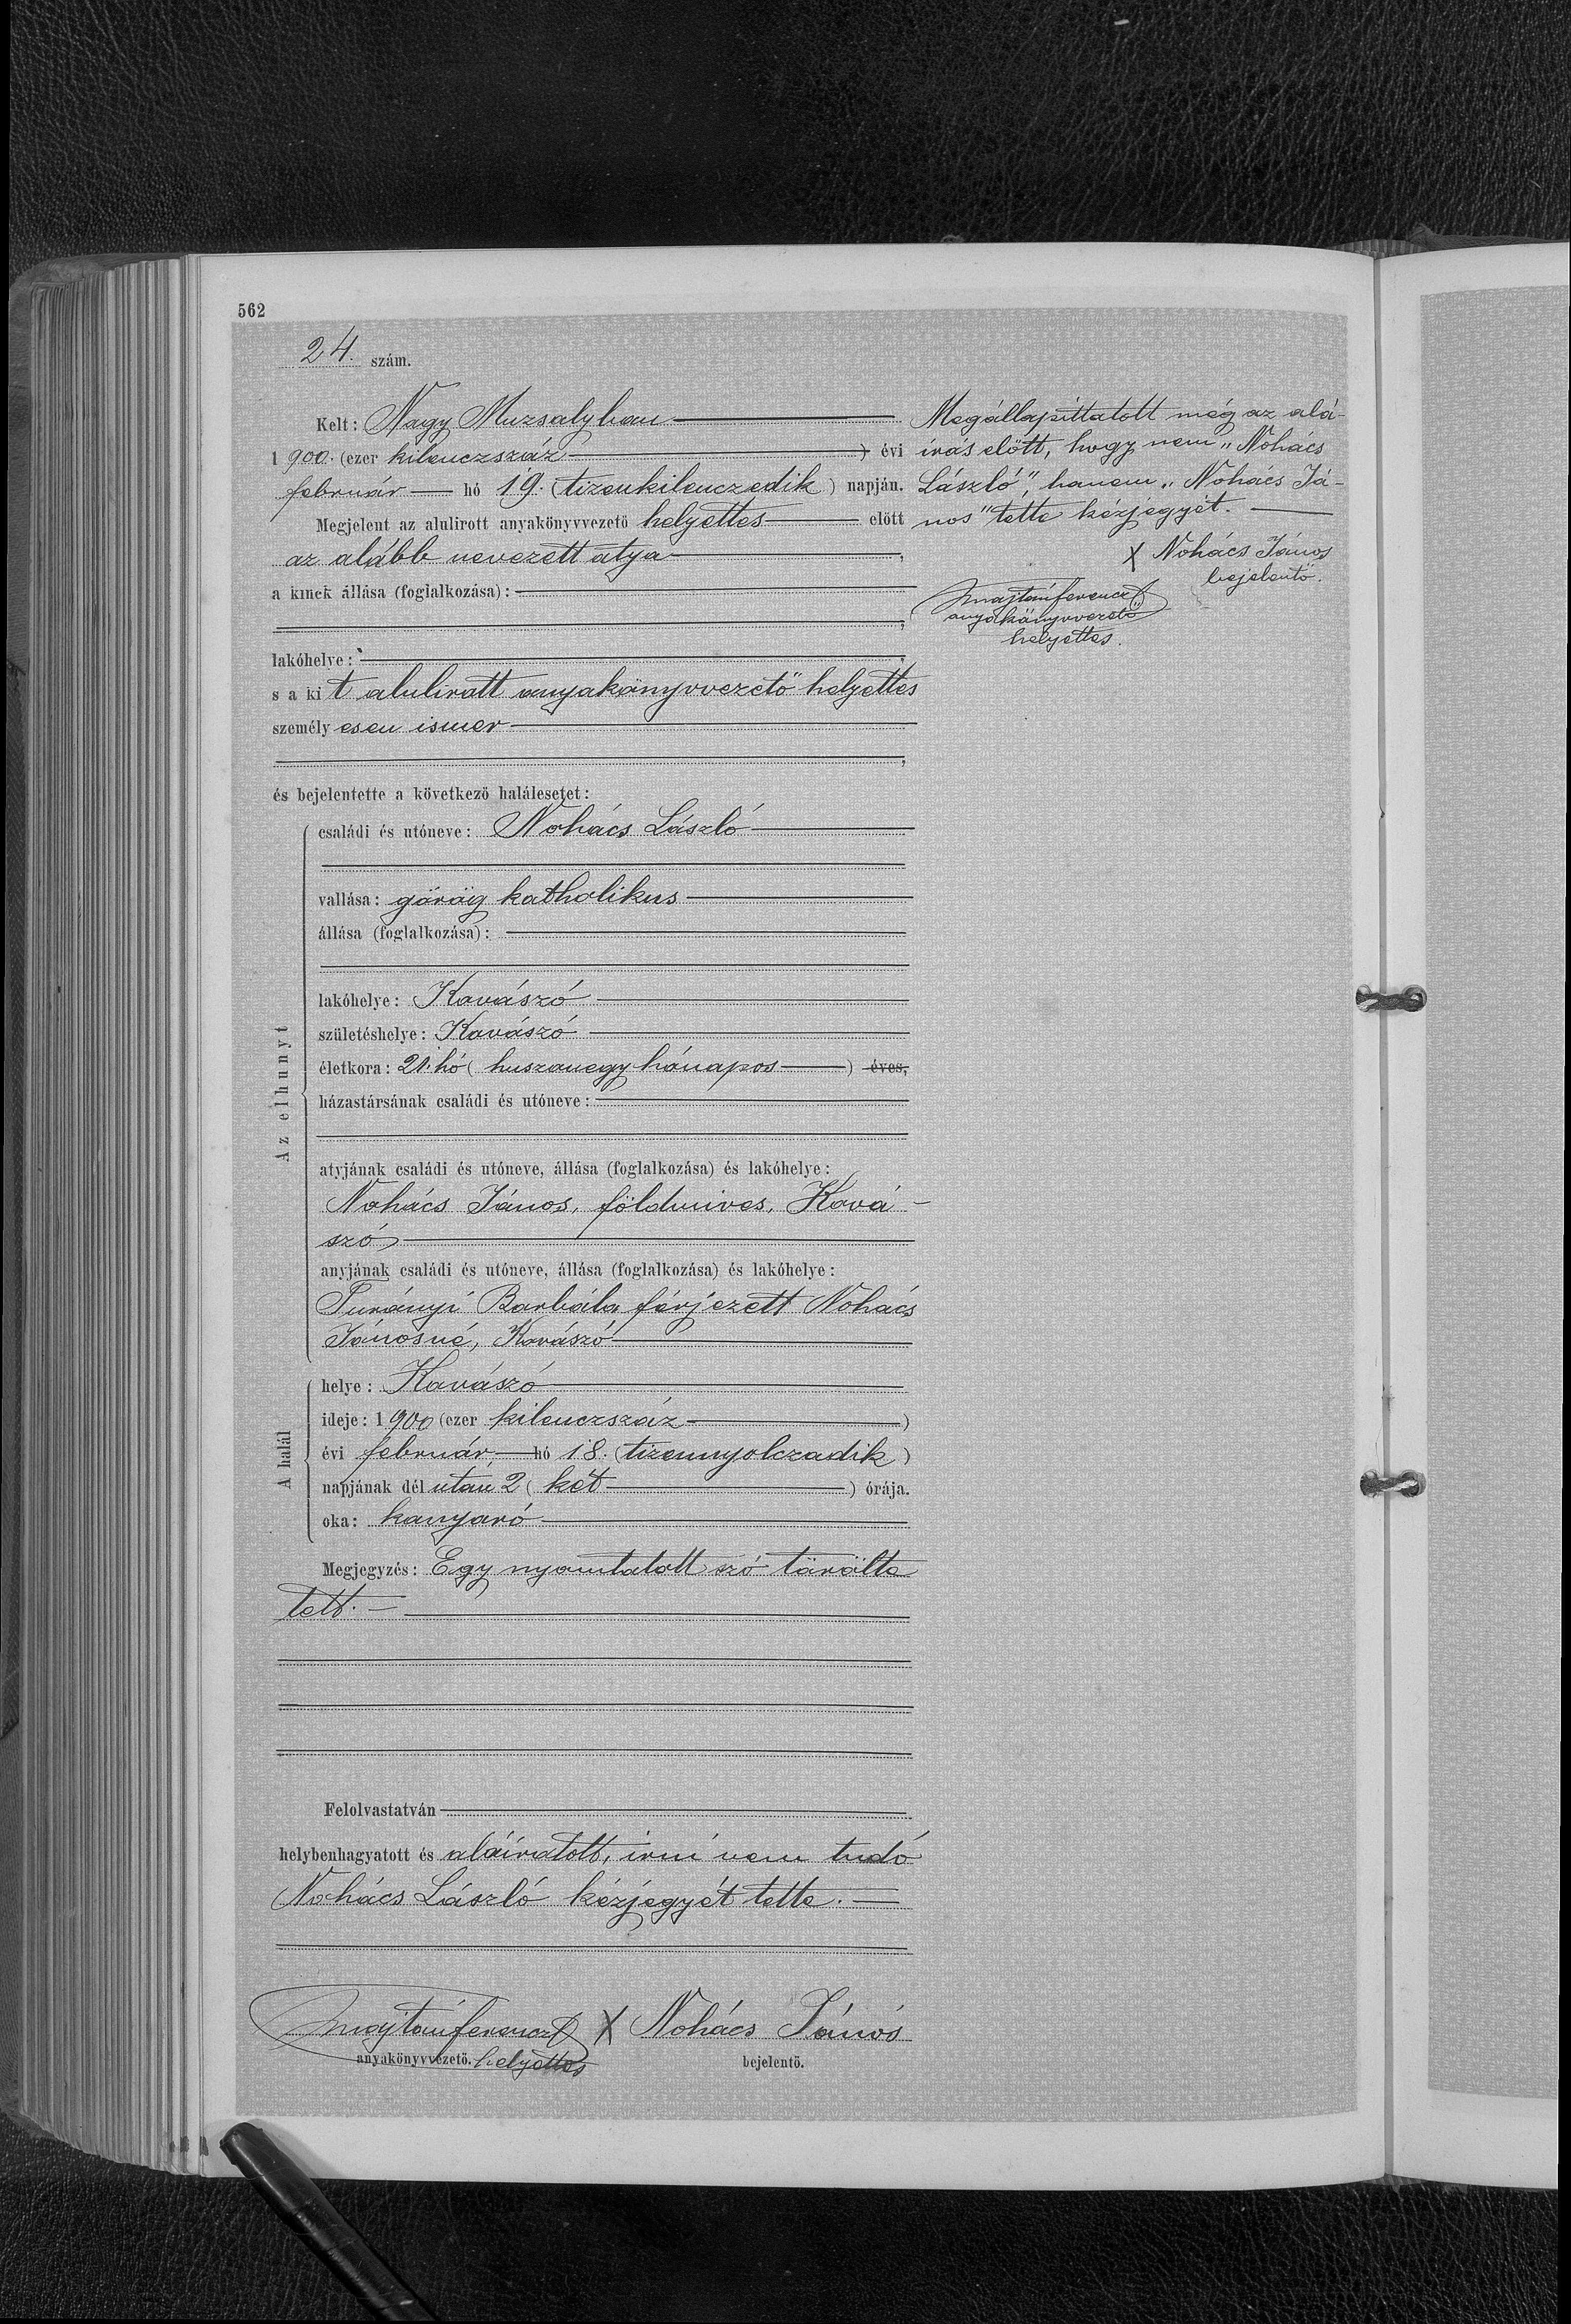 562
24. szám.
Kelt: Nagy Muzsalyban
1 900. (ezer kilenczszáz ) évi
február hó 19. (tizenkilenczedik) napján.
Megjelent az alulirott anyakönyvvezető helyettes előtt
az alább nevezett atya ,
a kinek állása (foglalkozása):
lakóhelye:
s a kit alulirott anyakönyvvezető helyettes
személyesen ismer
és bejelentette a következő halálesetet:
Az elhunyt
családi és utóneve: Nohács László
vallása: görög katholikus
állása (foglalkozása):
lakóhelye: Kovászó
születéshelye: Kovászó
életkora: 21. hó (huszonegy hónapos ) éves,
házastársának családi és utóneve:
atyjának családi és utóneve, állása (foglalkozása) és lakóhelye:
Nohács János, földmives, Ková-
szó
anyjának családi és utóneve, állása (foglalkozása) és lakóhelye:
Turányi Borbála férjezett Nohács
Jánosné, Kovászó
A halál
helye: Kovászó
ideje: 1 900 (ezer kilenczszáz )
évi február, hó 18. (tizennyolczadik)
napjának dél után 2 (két ) órája.
oka: kanyaró
Megjegyzés: Egy nyomtatott szó törölte
tett. —
Felolvastatván
helybenhagyatott és aláiratott, irni nem tudó
Nohács László kézjegyét tette.
Majtani ferencz X Nohács János
anyakönyvvezető. helyettes bejelentő.
Megállapittatott még az alá-
irás előtt, hogy nem „Nohács
László", hanem „Nohács Já-
nos" tette kézjegyét.
X Nohács János
bejelentő.
Majtani ferencz
anyakönyvvezető
helyettes.